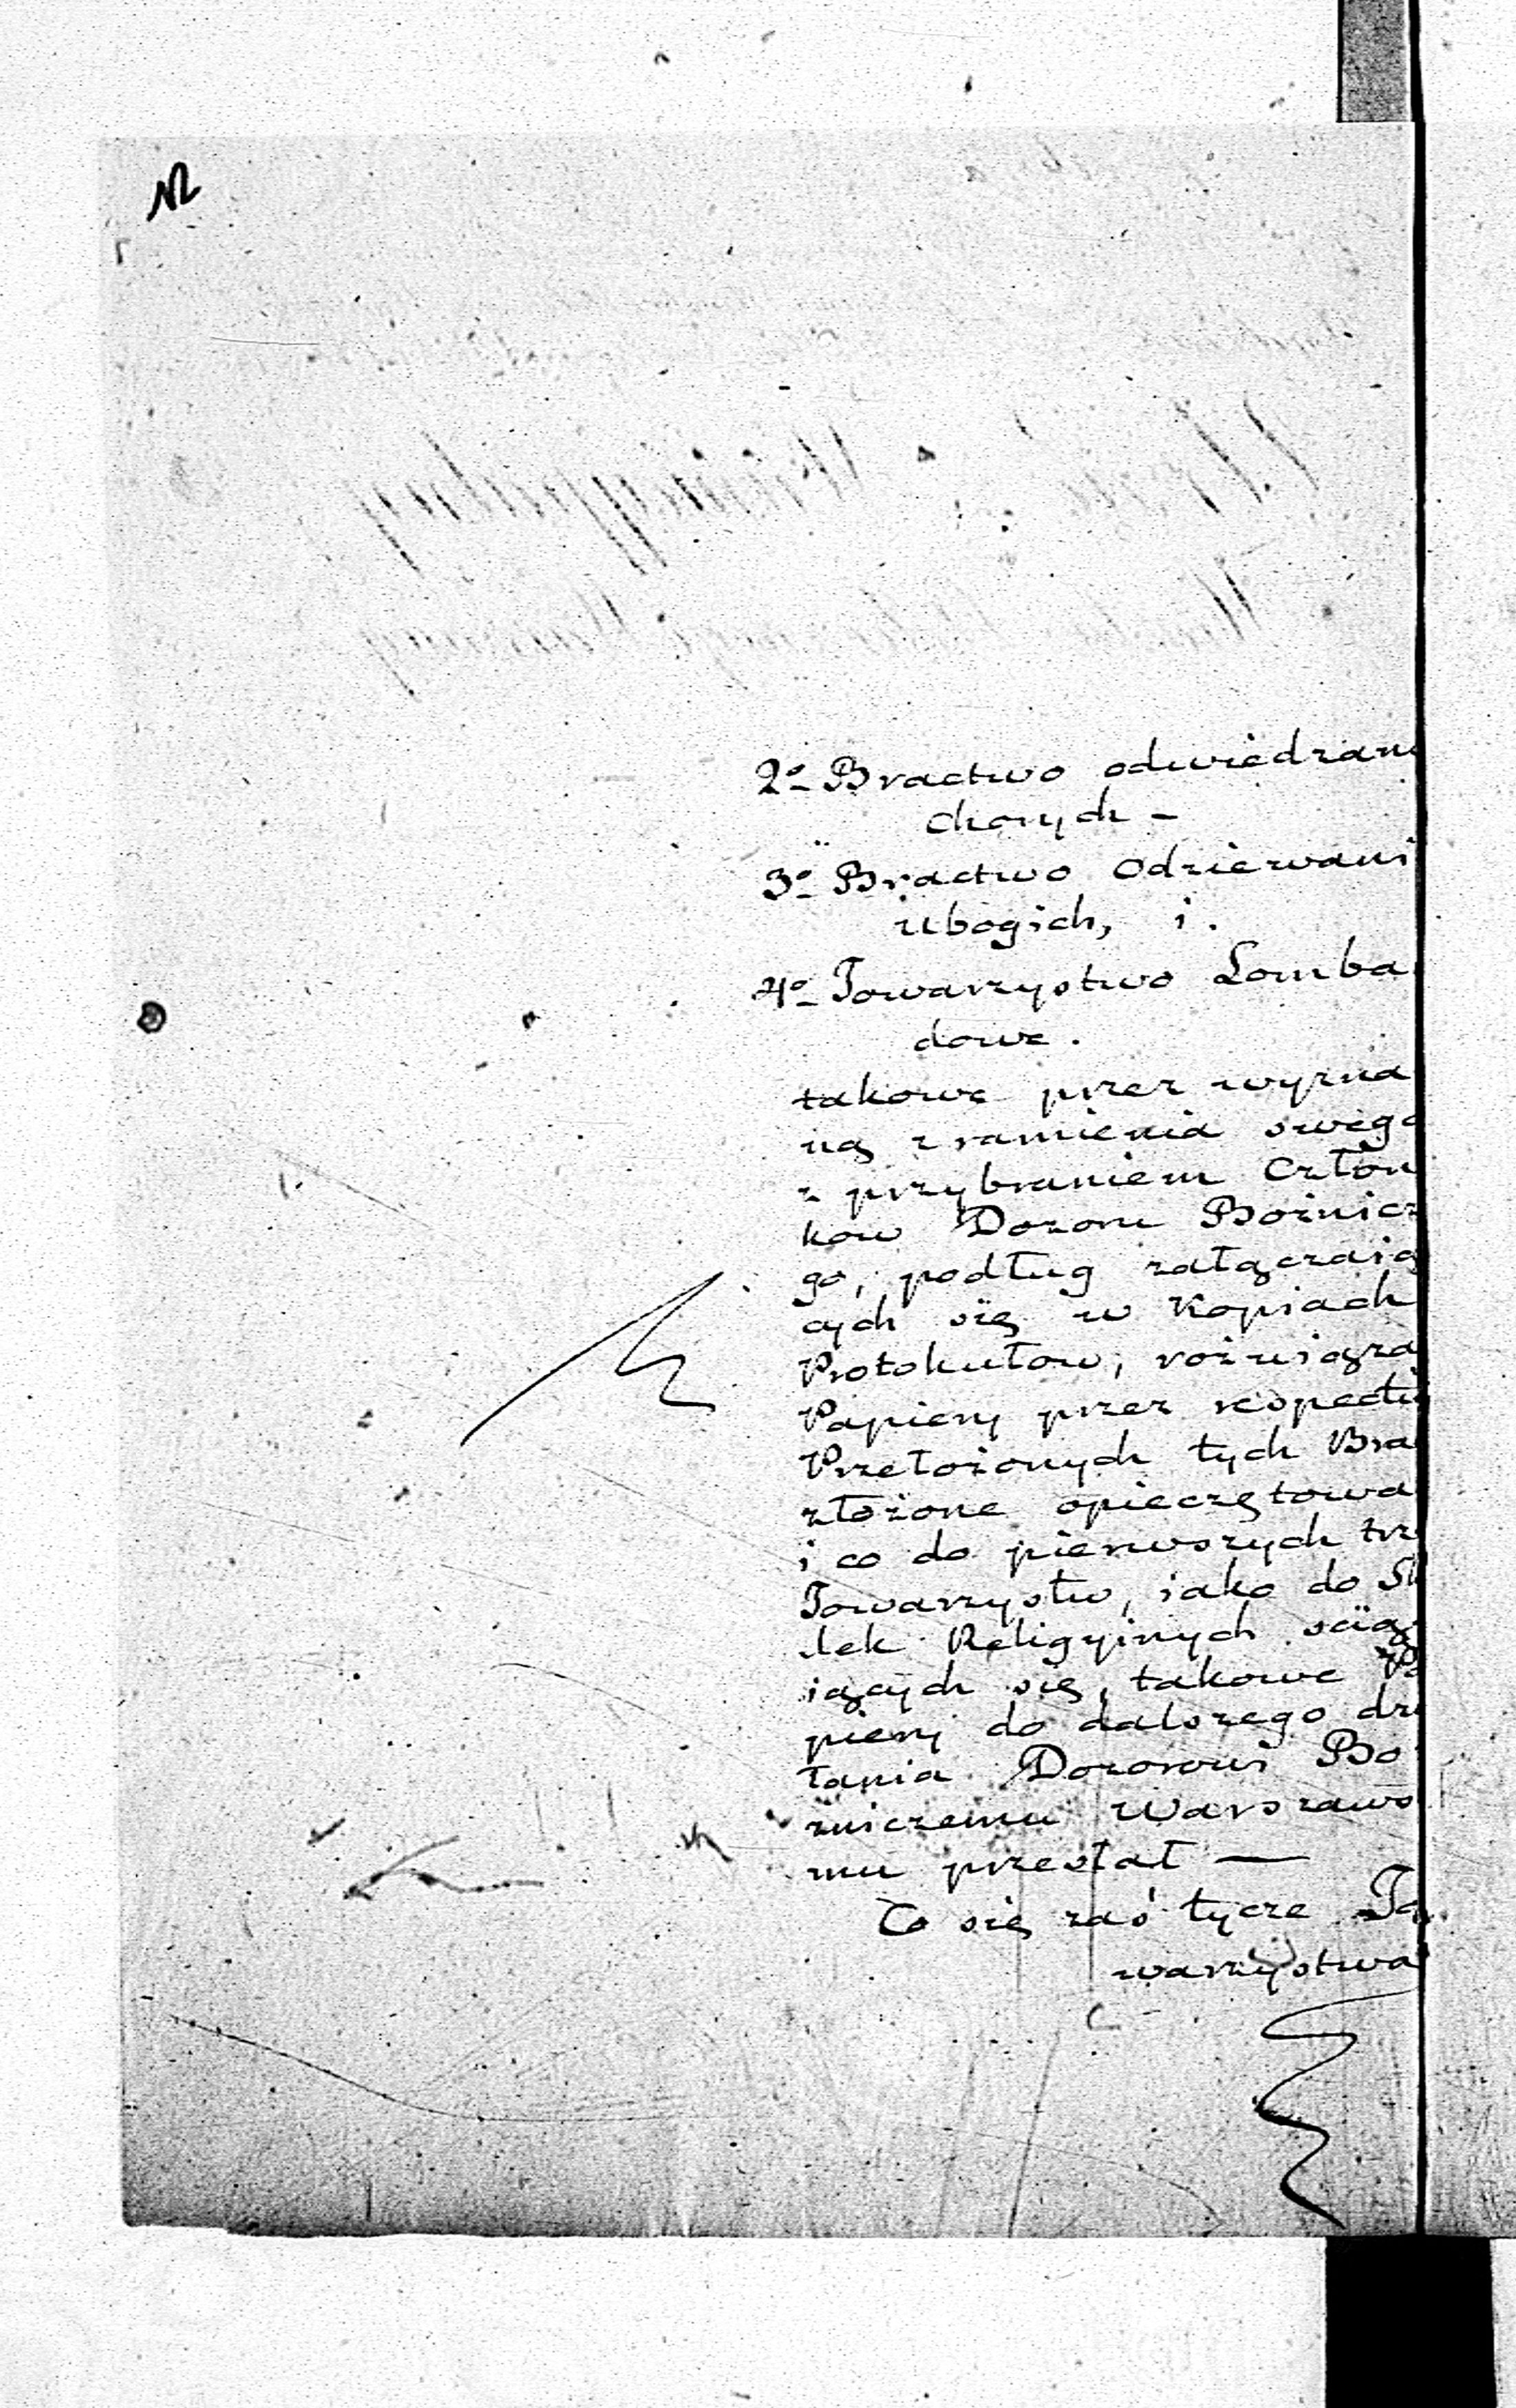 2o Bractwo odwiedzani
chorych -
3o Bractwo Odziewani
ubogich, i.
4o Towarzystwo Lomba
dowe.
takowe przez wyzna
ną z ramienia swego
z przybraniem Człon
kow Dozoru Bożnicz
go, podług załączaią
cych się w Kopiach
Protokułow, rozwiąza
Papiery przez respecti
Przełożonych tych Bra
złożone opieczętowa
i co do pierwszych trz
Towarzystw, iako do Sk
lek Religyinych sciąg
iących się, takowe Pa
piery do dalszego dzi
łania Dozorowi Bo
źniczemu Warszaws
mu przesłał —
Co się zaś tycze To
warzystwa